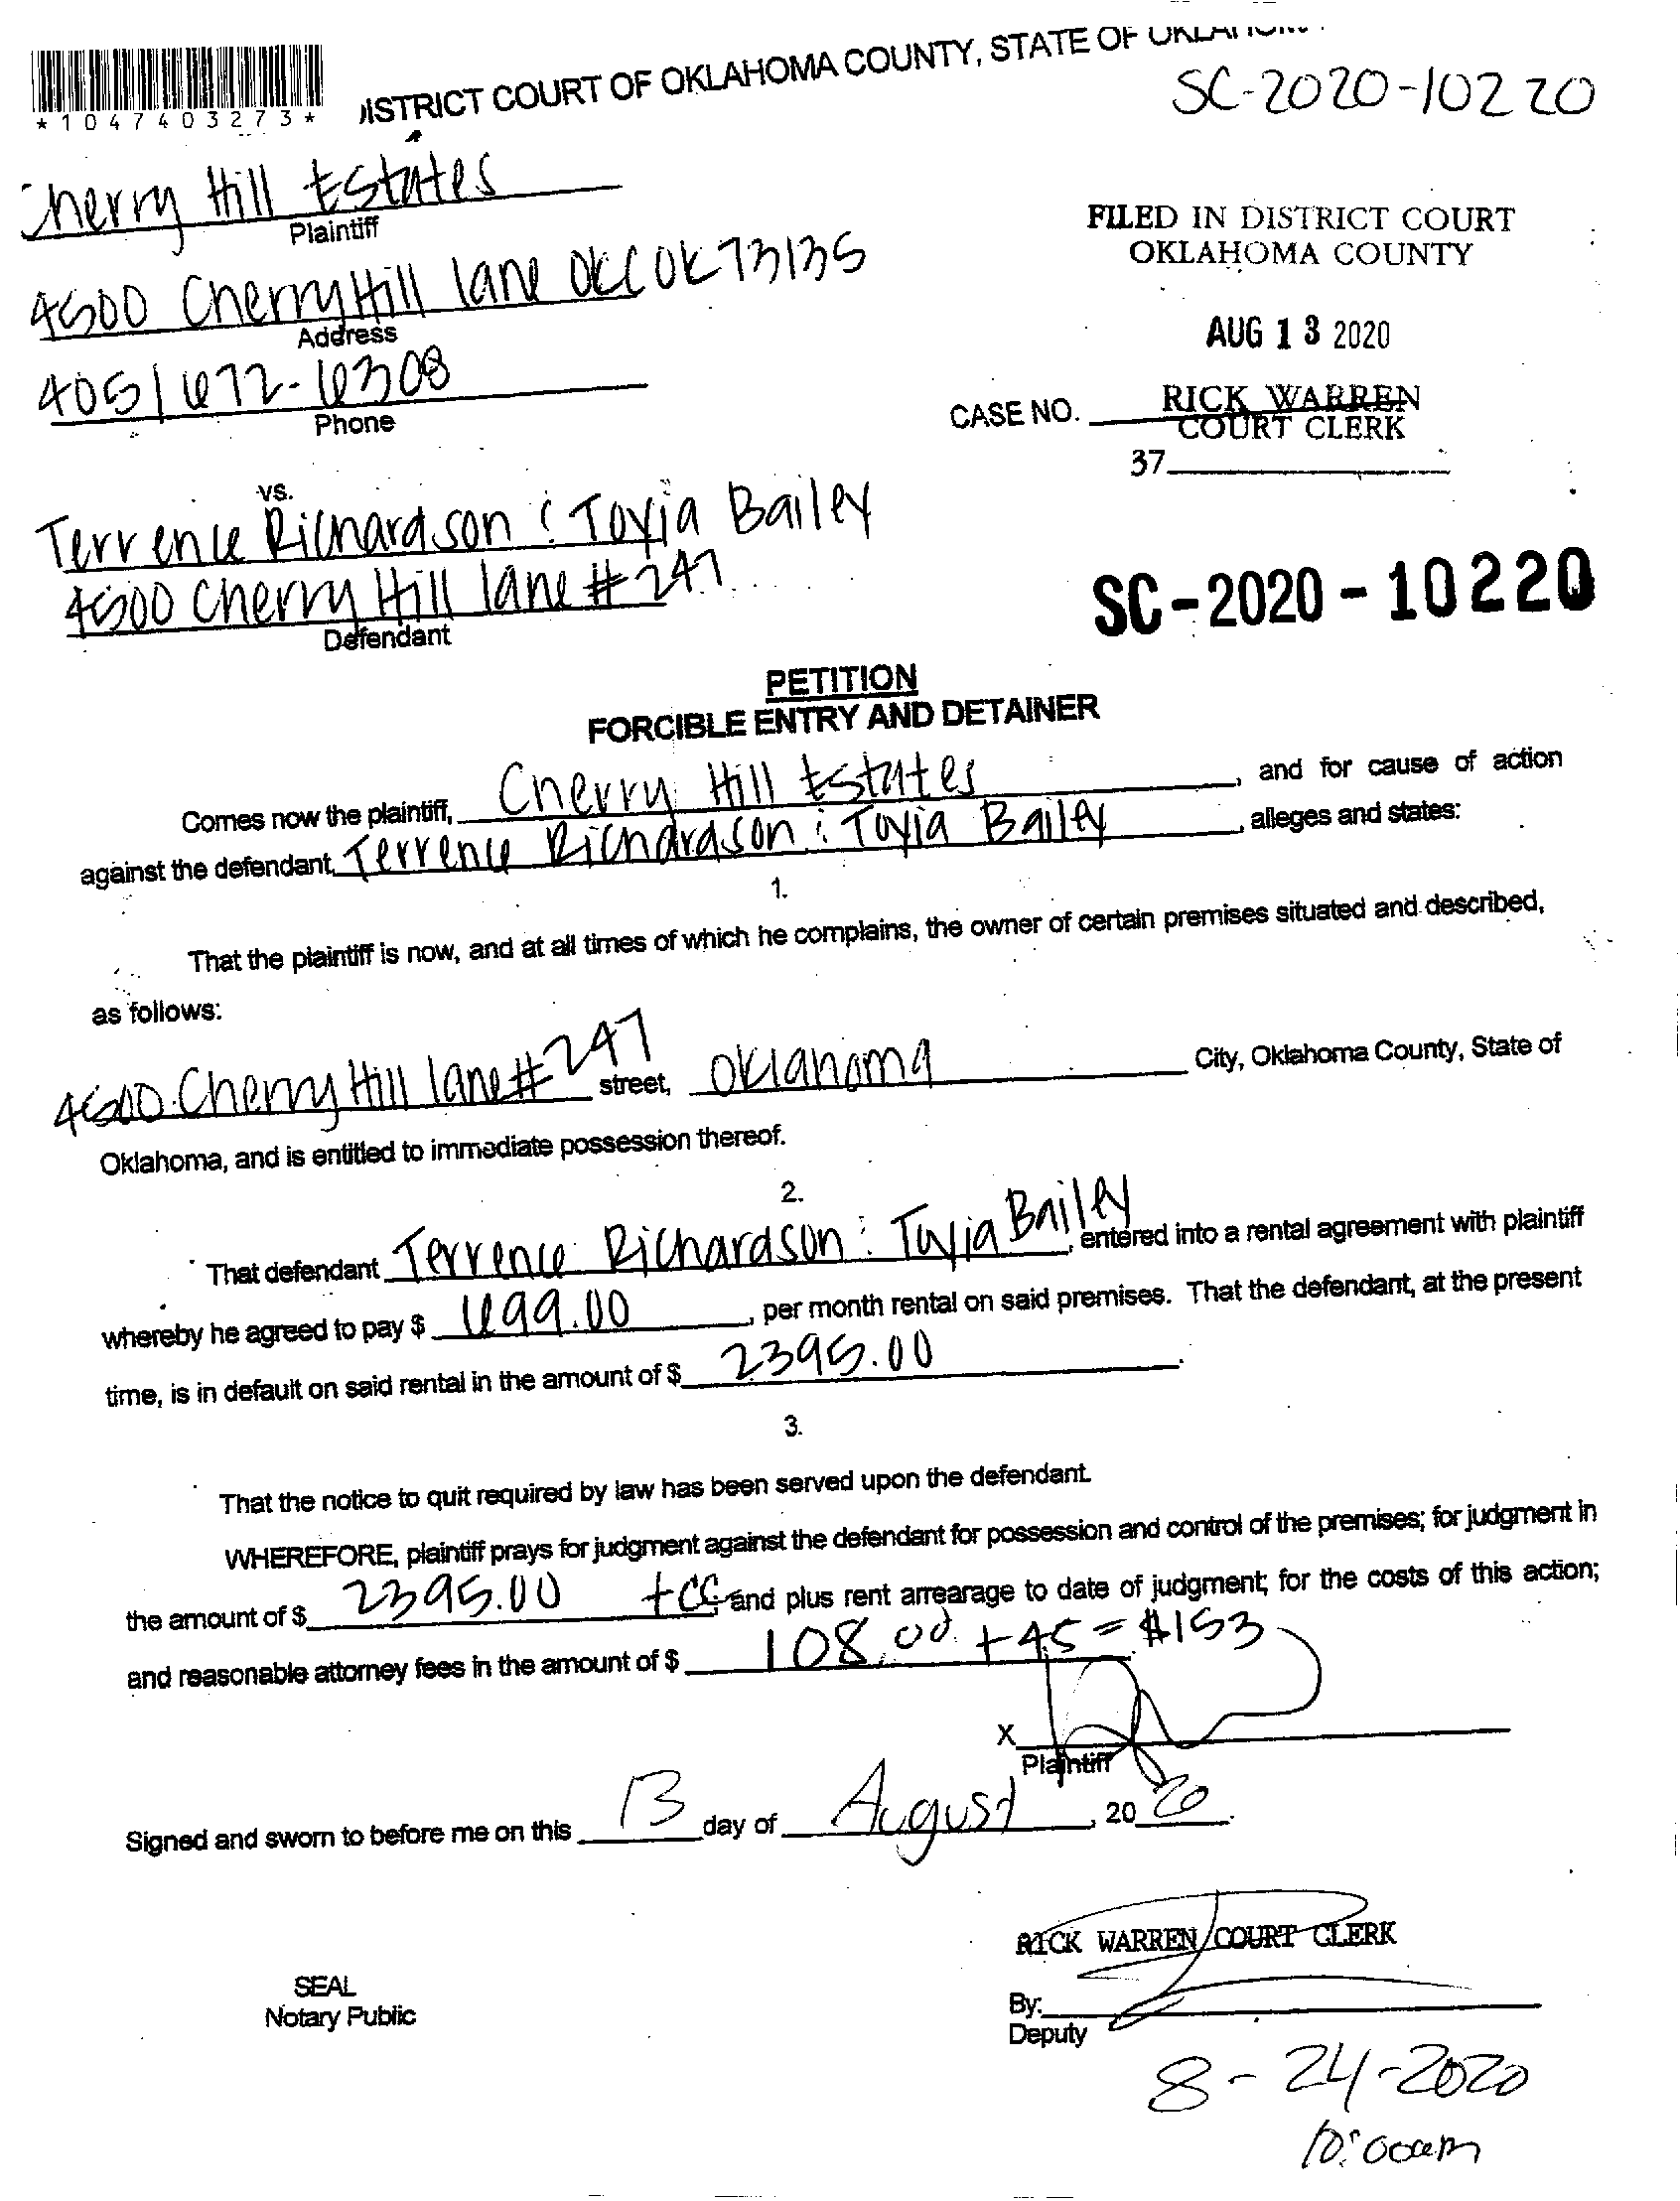 *1047403273*
DISTRICT COURT OF OKLAHOMA COUNTY, STATE OF OKLAHOMA
SC-2020-10220
Cherry Hill Estates
Plaintiff
FILED IN DISTRICT COURT
OKLAHOMA COUNTY
4500 Cherry Hill lane OKC OK 73135
Address
AUG 13 2020
405/672-6308
Phone
CASE NO.
RICK WARREN
COURT CLERK
37
vs.
Terrence Richardson : Toyia Bailey
4500 Cherry Hill lane # 247
Defendant
SC-2020-10220
PETITION
FORCIBLE ENTRY AND DETAINER
Comes now the plaintiff, Cherry Hill Estates, and for cause of action
against the defendant, Terrence Richardson : Toyia Bailey, alleges and states:
1.
That the plaintiff is now, and at all times of which he complains, the owner of certain premises situated and described,
as follows:
4500 Cherry Hill lane # 247 street, Oklahoma City, Oklahoma County, State of
Oklahoma, and is entitled to immediate possession thereof.
2.
That defendant Terrence Richardson : Toyia Bailey, entered into a rental agreement with plaintiff
whereby he agreed to pay $ 699.00, per month rental on said premises. That the defendant, at the present
time, is in default on said rental in the amount of $ 2395.00.
3.
That the notice to quit required by law has been served upon the defendant.
WHEREFORE, plaintiff prays for judgment against the defendant for possession and control of the premises; for judgment in
the amount of $ 2395.00 +CC, and plus rent arrearage to date of judgment; for the costs of this action;
and reasonable attorney fees in the amount of $ 108.00 + 45 = $153
X
Plaintiff
Signed and sworn to before me on this 13 day of August, 2020.
RICK WARREN COURT CLERK
SEAL
Notary Public
By:
Deputy
8-24-2020
10:00am